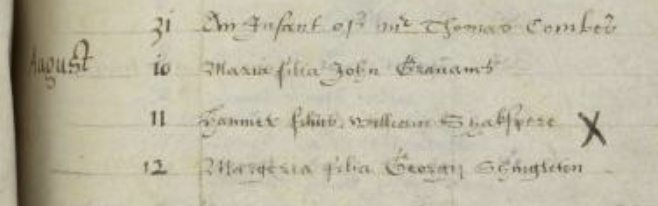 31 An Infant of mr Thomas Combes
August 10 Maria filia John
11 Hamnet filius William Shakspere X
12 Margeria filia Georgij Shingleton